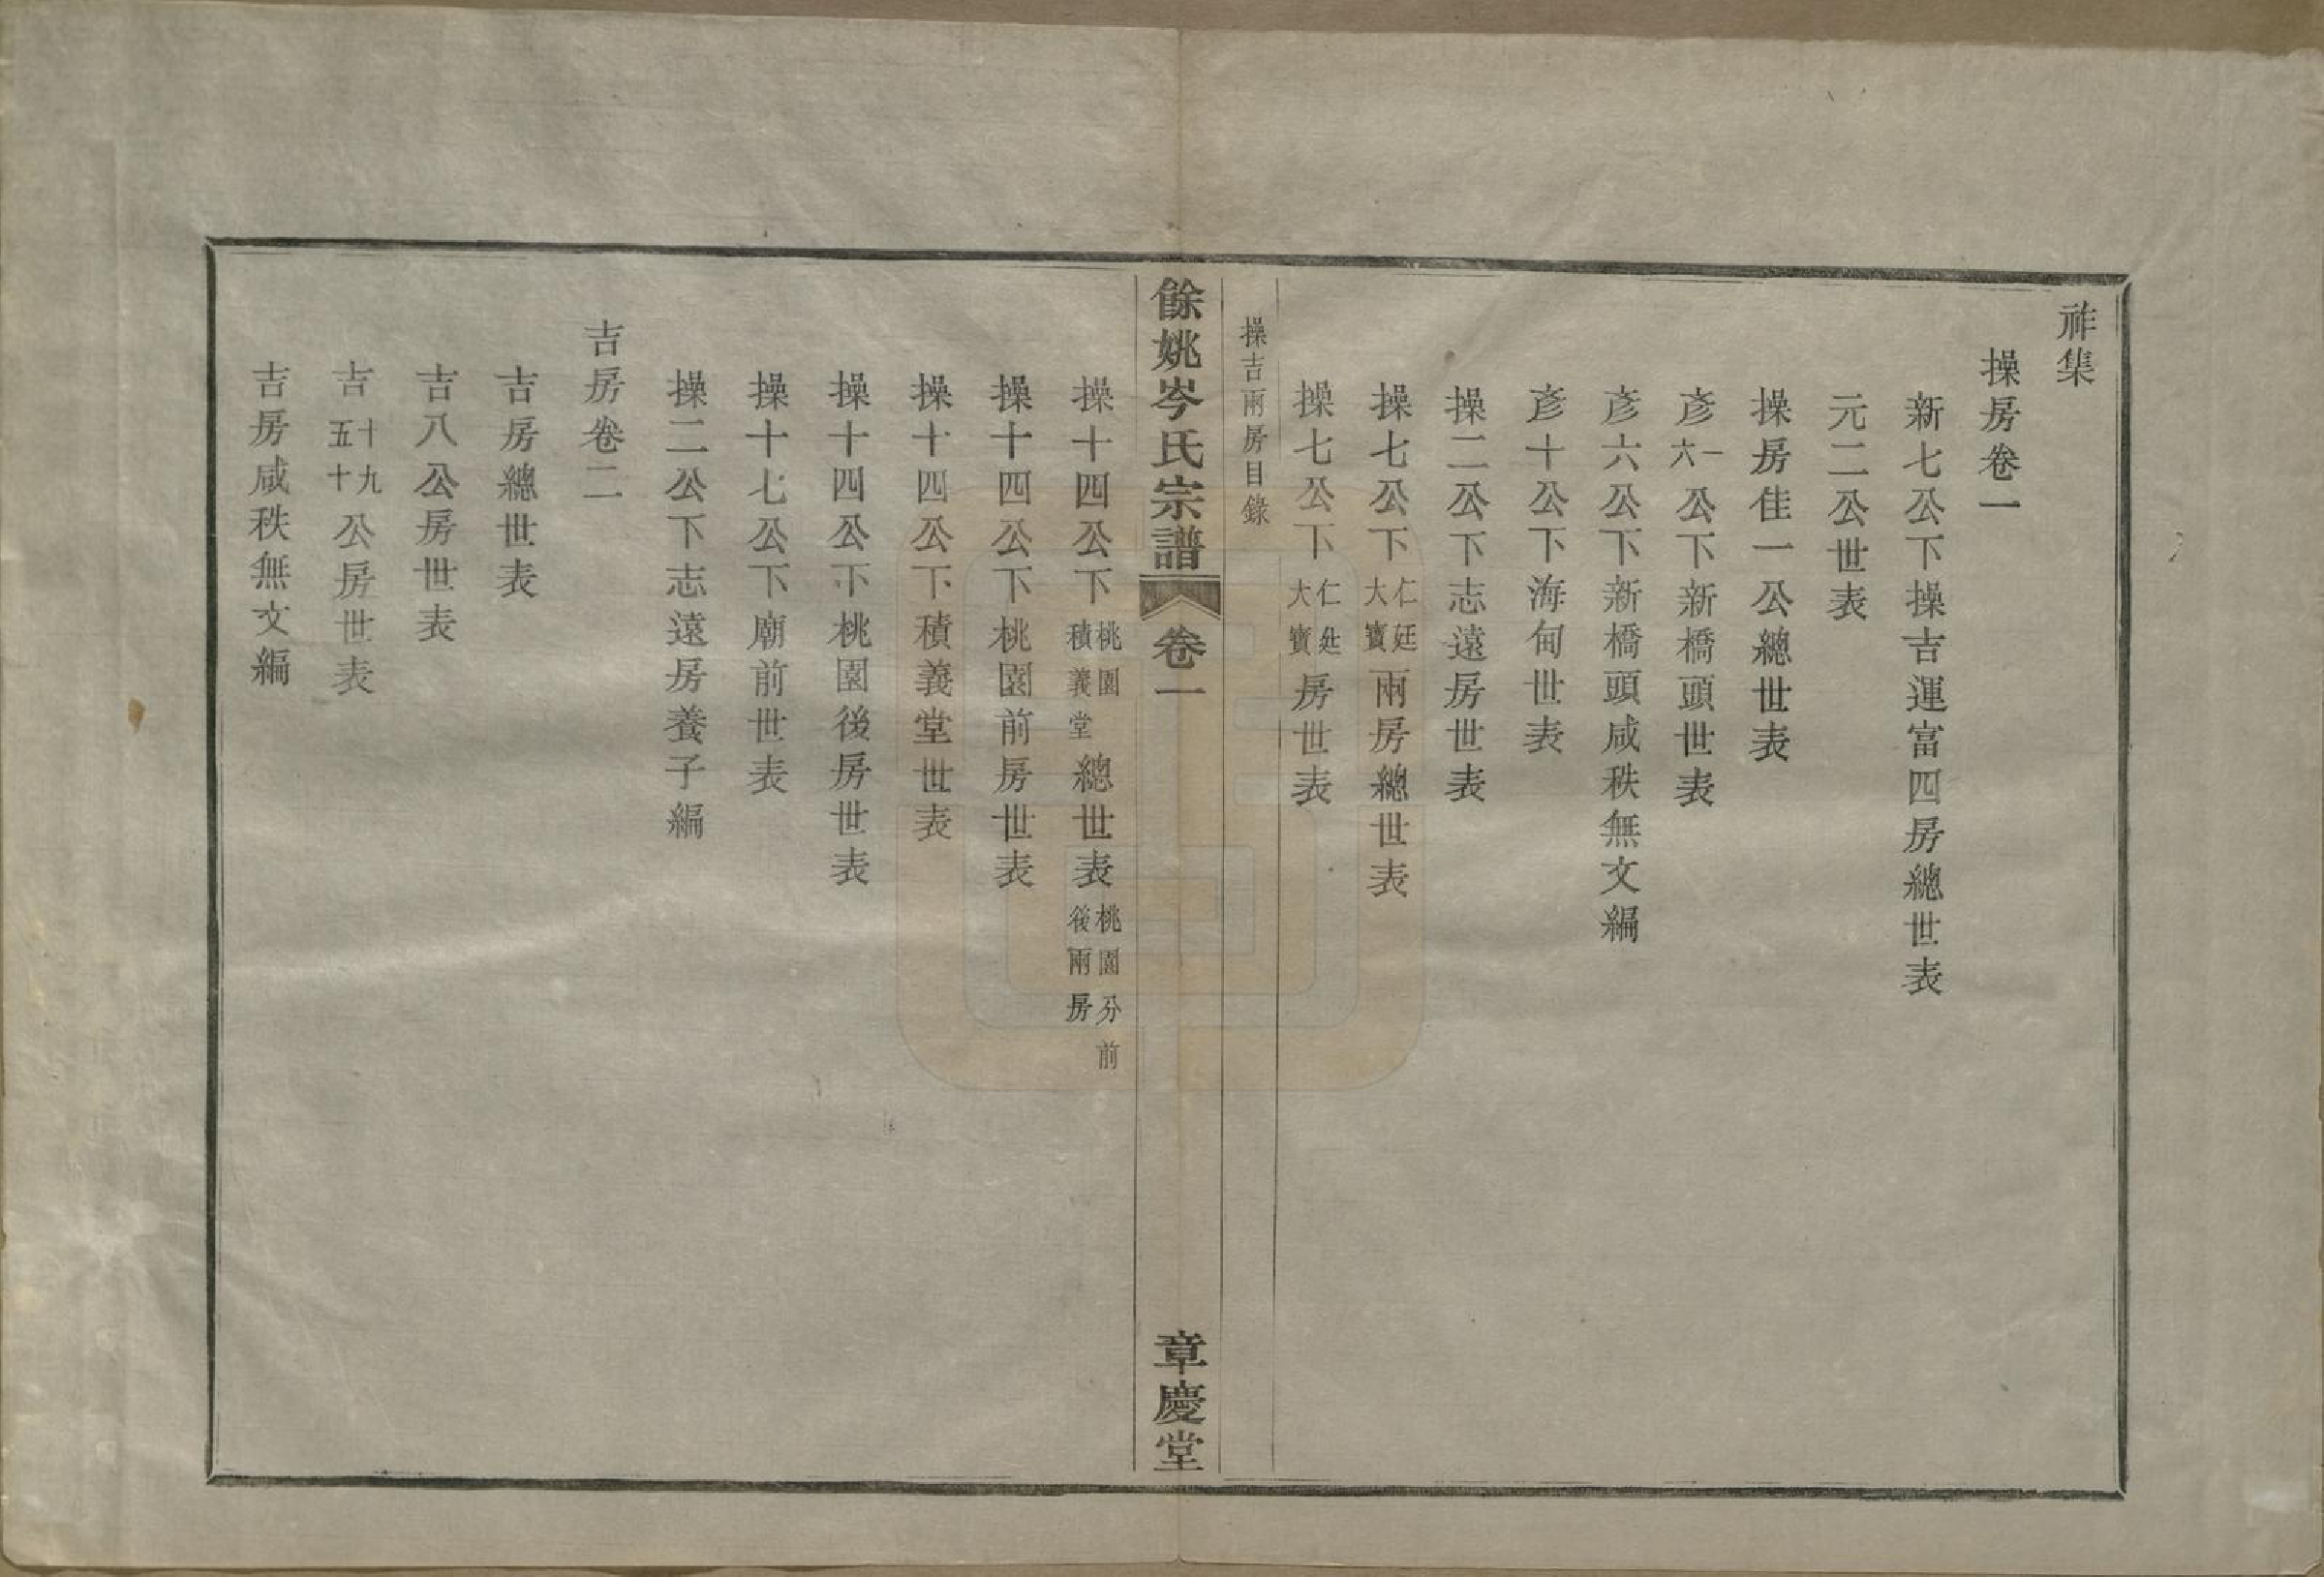 祚集
操房卷一
新七公下操吉運富四房總世表
元二公世表
操房佳一公總世表
彥一六公下新橋頭世表
彥六公下新橋頭咸秩無文編
彥十公下海甸世表
操二公下志遠房世表
操七公下仁廷大寶兩房總世表
操七公下仁廷大寶房世表
操吉兩房目錄
餘姚岑氏宗譜 卷一 章慶堂
操十四公下桃園積義堂總世表桃園分前後兩房
操十四公下桃園前房世表
操十四公下積義堂世表
操十四公下桃園後房世表
操十七公下廟前世表
操二公下志遠房養子編
吉房卷二
吉房總世表
吉八公房世表
吉十九五十公房世表
吉房咸秩無文編